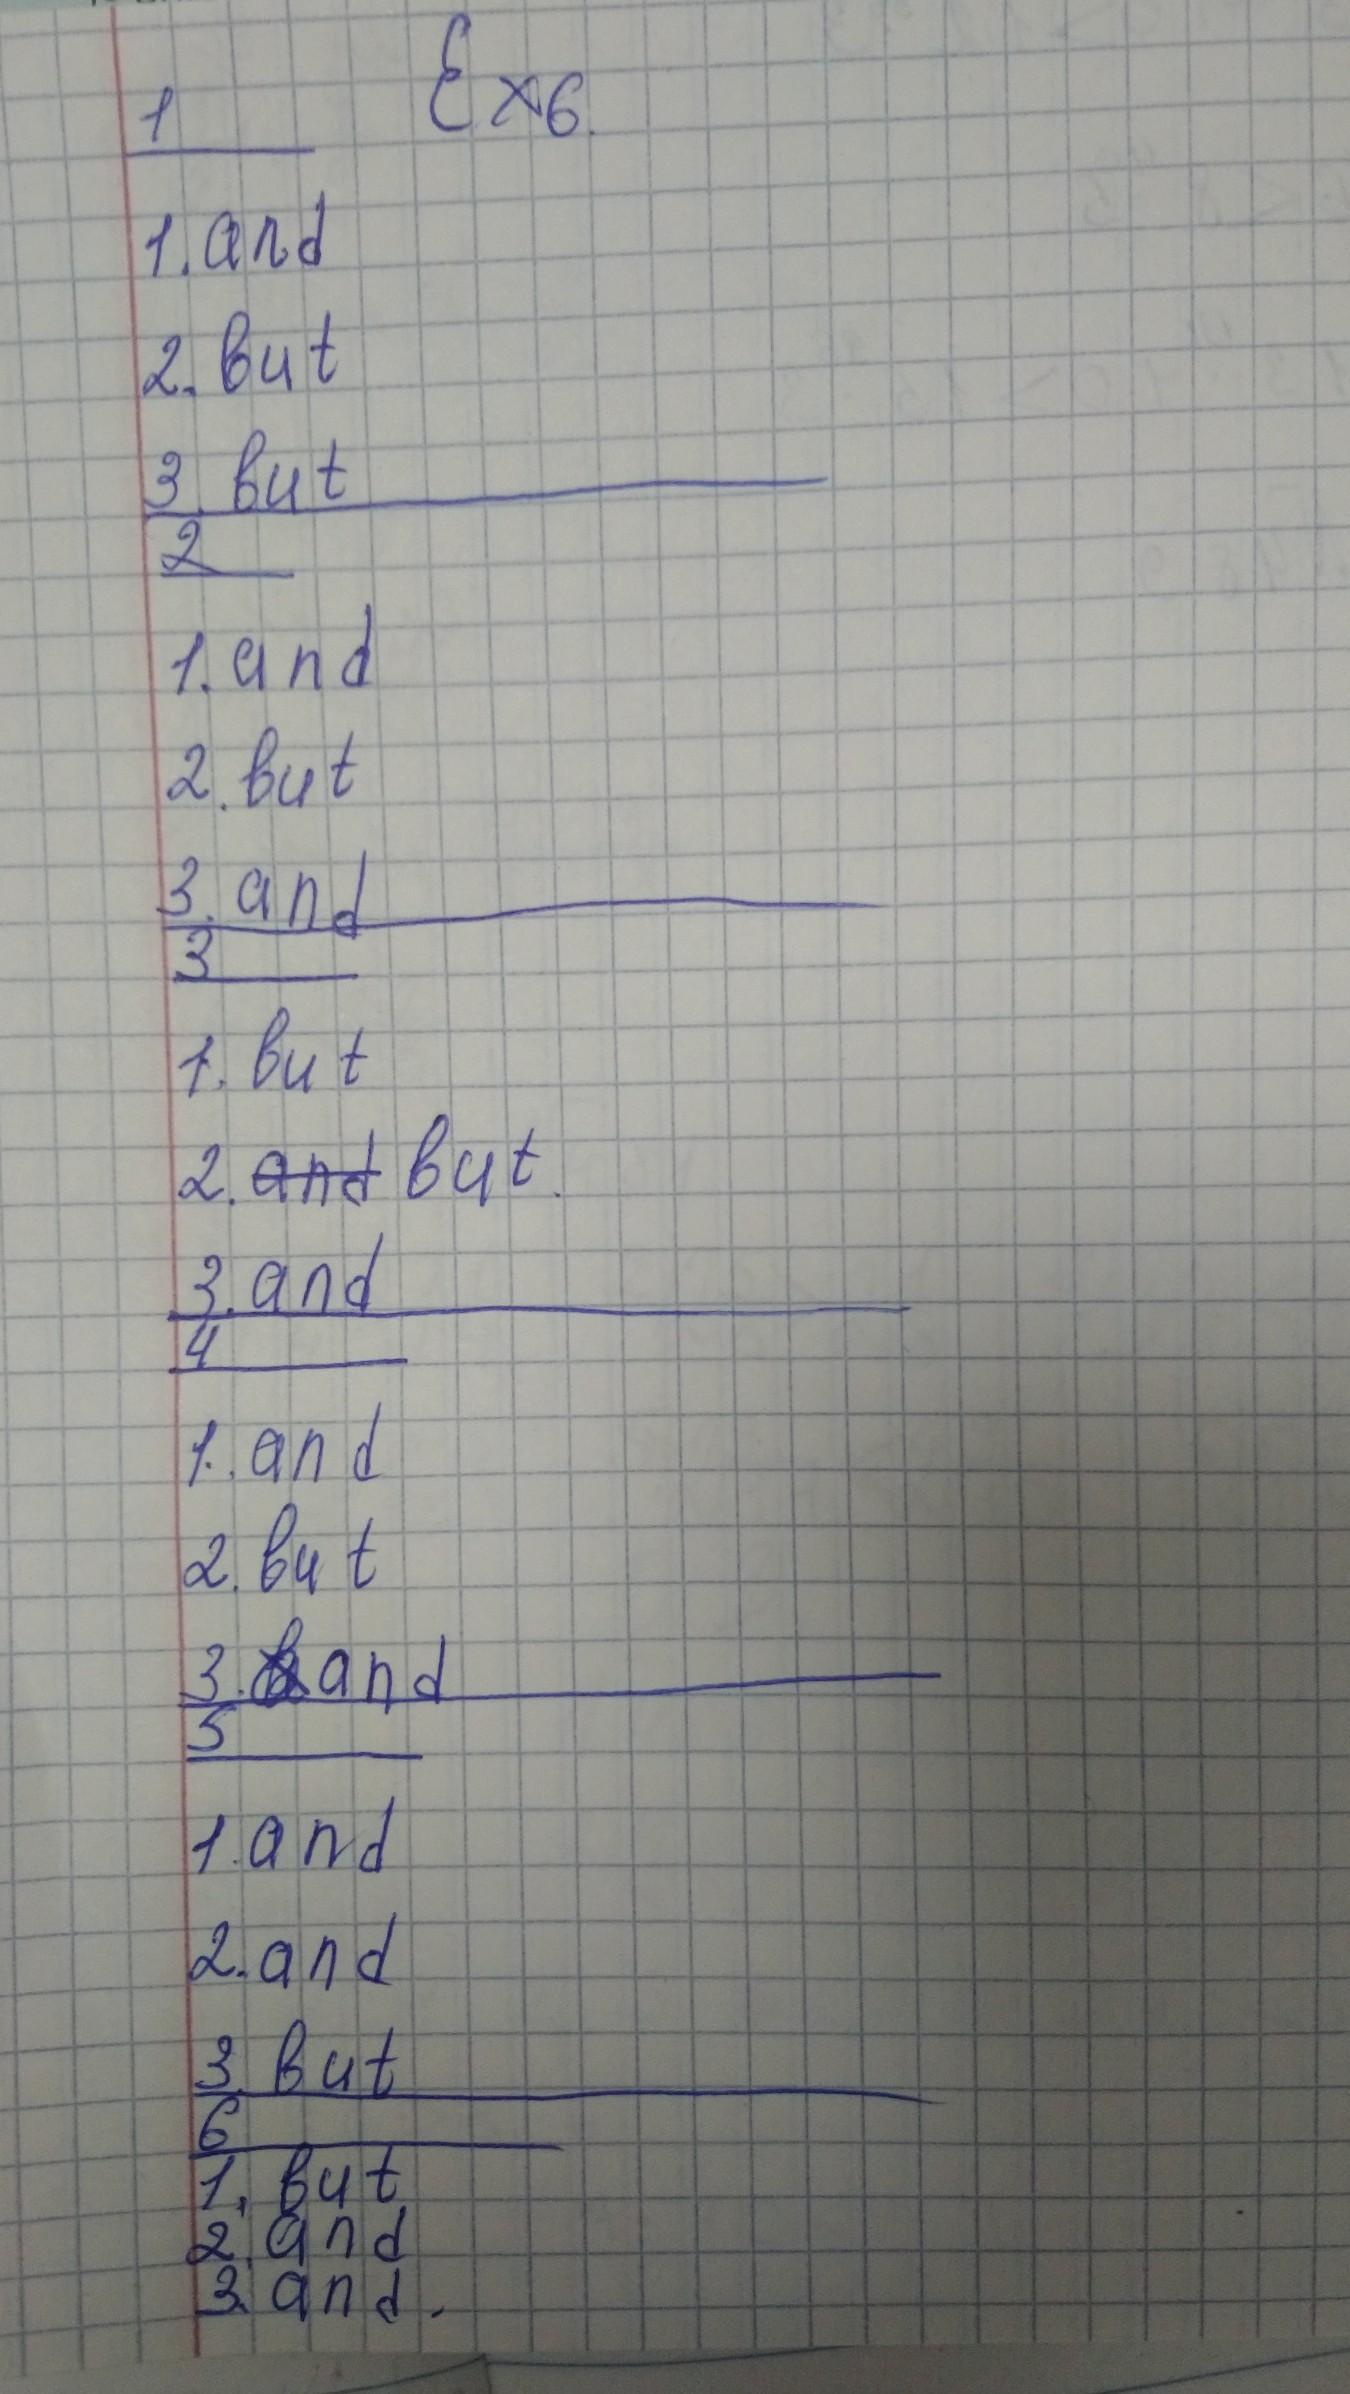 Ex6.
1
1. and
2. but
3. but
2
1. and
2. but
3. and
3
1. but
2. and but.
3. and
4
1. and
2. but
3. and
5
1. and
2. and
3. but
6
1. but
2. and
3. and.